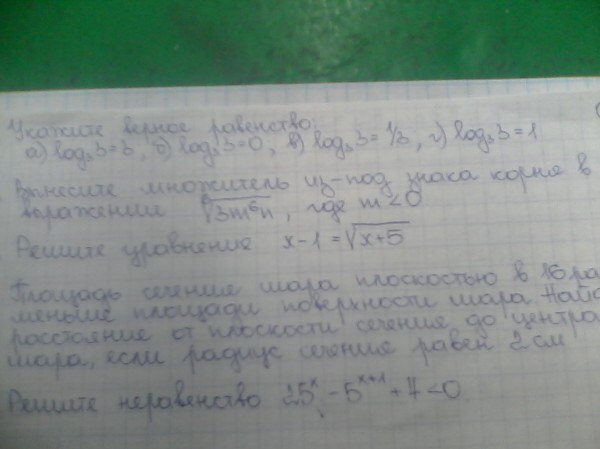 Укажите верное равенство:
а) log₃3=3, б) log₃3=0, в) log₃3=1/3, г) log₃3=1
Вынесите множитель из-под знака корня в
выражении ⁶√3m⁶n, где m<0
Решите уравнение x-1=√x+5
Площадь сечения шара плоскостью в 16 ра
меньше площади поверхности шара. Найд
расстояние от плоскости сечения до центра
шара, если радиус сечения равен 2 см
Решите неравенство 25ˣ-5ˣ⁺¹+4<0